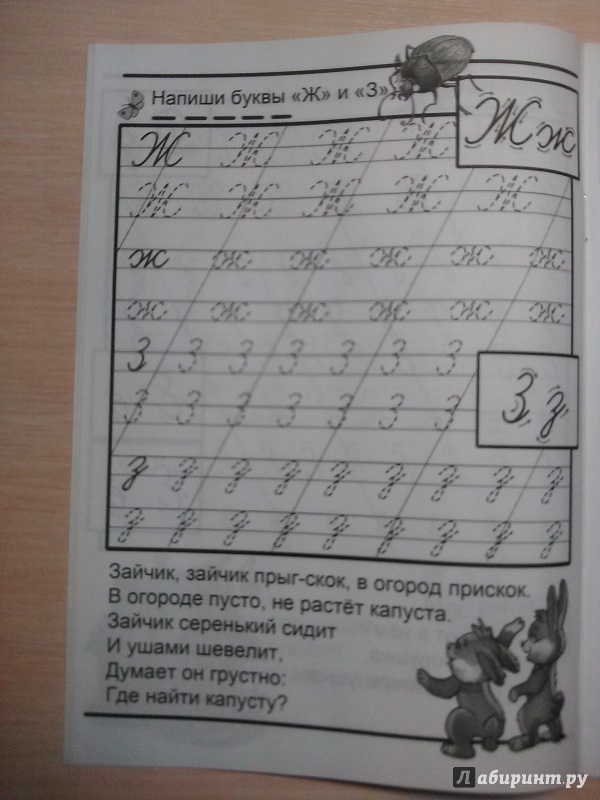 Напиши буквы «Ж» и «З».
Ж Ж Ж Ж
Ж ж
Ж Ж Ж Ж Ж
ж ж ж ж ж ж
ж ж ж ж ж ж
З З З З З З З
З з
З З З З З З З
з з з з з з з з з
з з з з з з з з з
Зайчик, зайчик прыг-скок, в огород прискок.
В огороде пусто, не растёт капуста.
Зайчик серенький сидит
И ушами шевелит,
Думает он грустно:
Где найти капусту?
Лабиринт.ру